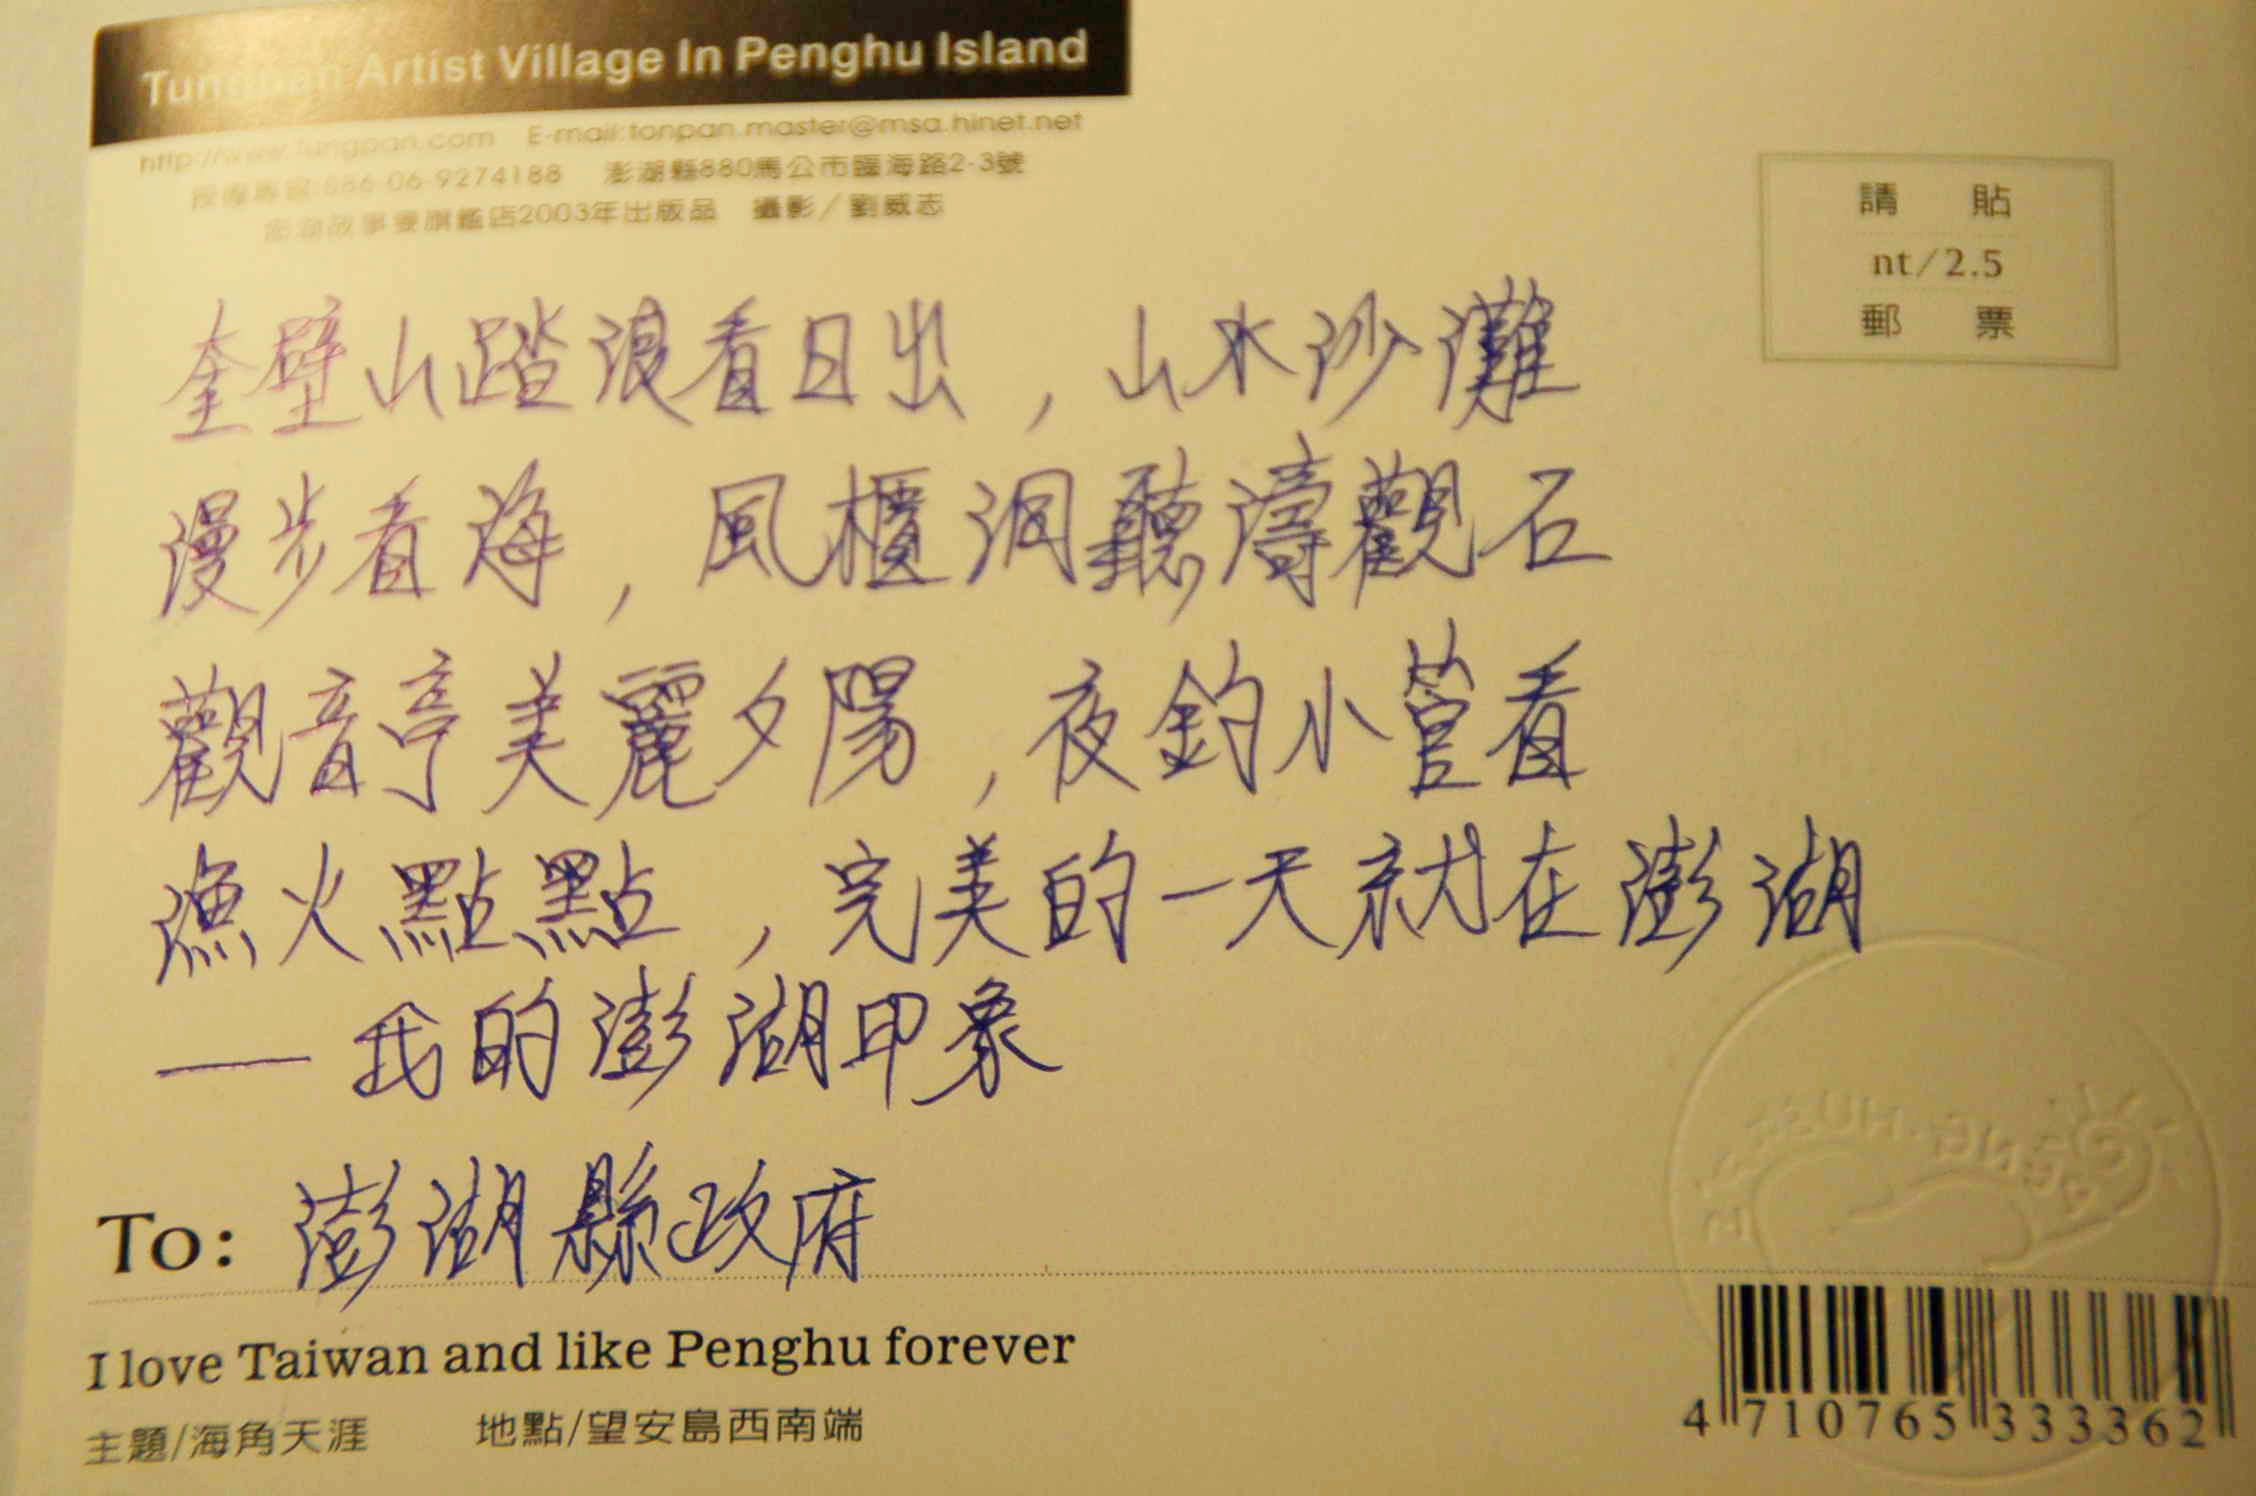 Tungpan Artist Village In Penghu Island
http://www.tungpan.com E-mail:tonpan.master@msa.hinet.net
授傳專線:886-06-9274188 澎湖縣880馬公市臨海路2-3號
澎湖故事妻旗艦店2003年出版品 攝影/劉威志
請 貼
nt/2.5
郵 票
奎壁山踏浪看日出，山水沙灘
漫步看海，風櫃洞聽濤觀石
觀音亭美麗夕陽，夜釣小管看
漁火點點，完美的一天就在澎湖
——我的澎湖印象
To: 澎湖縣政府
I love Taiwan and like Penghu forever
主題/海角天涯 地點/望安島西南端
4 710765 333362